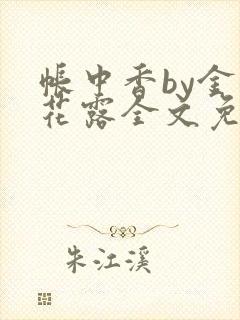 帐中香by金
花露全文免
朱江溪